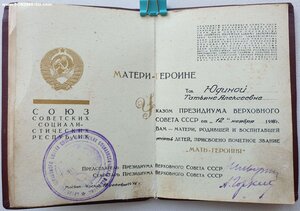 СОЮЗ
СОВЕТСКИХ
СОЦИАЛИ-
СТИЧЕСКИХ
РЕСПУБЛИК
МАТЕРИ-ГЕРОИНЕ
Тов. Юдиной
Татьяне Алексеевне
УКАЗОМ ПРЕЗИДИУМА ВЕРХОВНОГО
СОВЕТА СССР от "12" 194
ВАМ — МАТЕРИ, РОДИВШЕЙ И ВОСПИТАВШЕЙ
ДЕТЕЙ, ПРИСВОЕНО ПОЧЕТНОЕ ЗВАНИЕ
„МАТЬ-ГЕРОИНЯ"
Председатель Президиума Верховного Совета СССР
Секретарь Президиума Верховного Совета СССР
Москва - Кремль